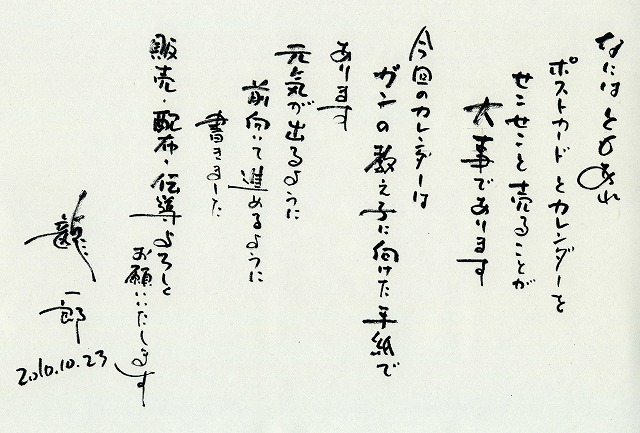 なにはともあれ
ポストカードとカレンダーを
せこせこと売ることが
大事であります
今回のカレンダーは
ガンの教え子に向けた手紙で
あります
元気が出るように
前向いて進めるように
書きました
販売・配布・伝導よろしく
お願いいたします
龍一郎
2010.10.23